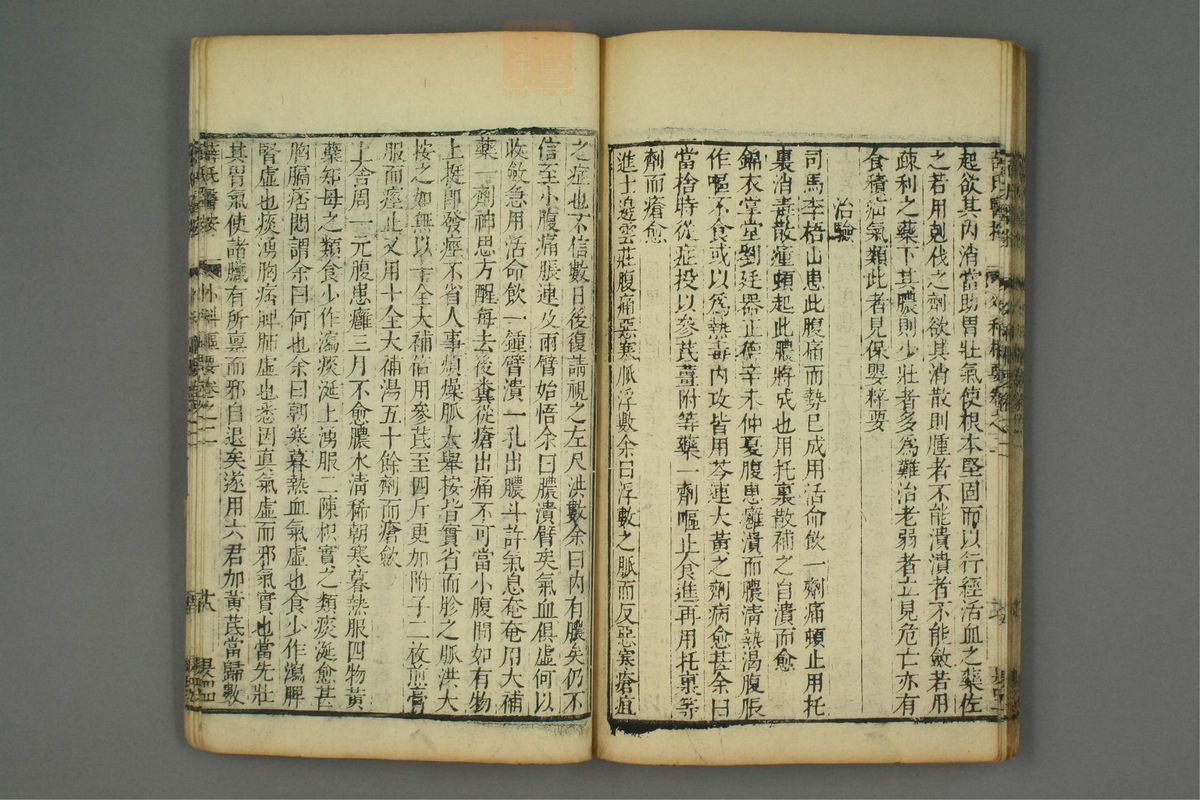 起欲其內消當助胃壯氣使根本堅固而以行經活血之藥佐
之若用剋伐之劑欲其消散則腫者不能潰潰者不能斂若用
疎利之藥下其膿則少壯者多為難治老弱者立見危亡亦有
食積疝氣類此者見保嬰粹要
治驗
司馬李梧山患此腹痛而勢已成用活命飲一劑痛頓止用托
裏消毒散瘇頓起此膿將成也用托裏散補之自潰而愈
錦衣掌堂劉廷器正德辛未仲夏腹患癰潰而膿清熱渴腹脹
作嘔不食或以為熱毒內攻皆用芩連大黃之劑病愈甚余曰
當捨時從症投以參芪薑附等藥一劑嘔止食進再用托裏等
劑而瘡愈
進士邊雲莊腹痛惡寒脈浮數余曰浮數之脈而反惡寒瘡疽
之症也不信數日後復請視之左尺洪數余曰內有膿矣仍不
信至小腹痛脹連及兩臂始悟余曰膿潰臂矣氣血俱虛何以
收斂急用活命飲一鍾臂潰一孔出膿斗許氣息奄奄用大補
藥一劑神思方醒每去後糞從瘡出痛不可當小腹間如有物
上挺即發痙不省人事煩燥脈大舉按皆實省而胗之脈洪大
按之如無以十全大補倍用參芪至四斤更加附子二枚煎膏
服而痙止又用十全大補湯五十餘劑而瘡斂
上舍周一元腹患癰三月不愈膿水清稀朝寒暮熱服四物黃
蘗知母之類食少作瀉痰涎上湧服二陳枳實之類痰涎愈甚
胸膈痞悶謂余曰何也余曰朝寒暮熱血氣虛也食少作瀉脾
腎虛也痰湧胸痞脾肺虛也悉因真氣虛而邪氣實也當先壯
其胃氣使諸臟有所稟而邪自退矣遂用六君加黃芪當歸數
薛氏醫按 外科樞要卷之二